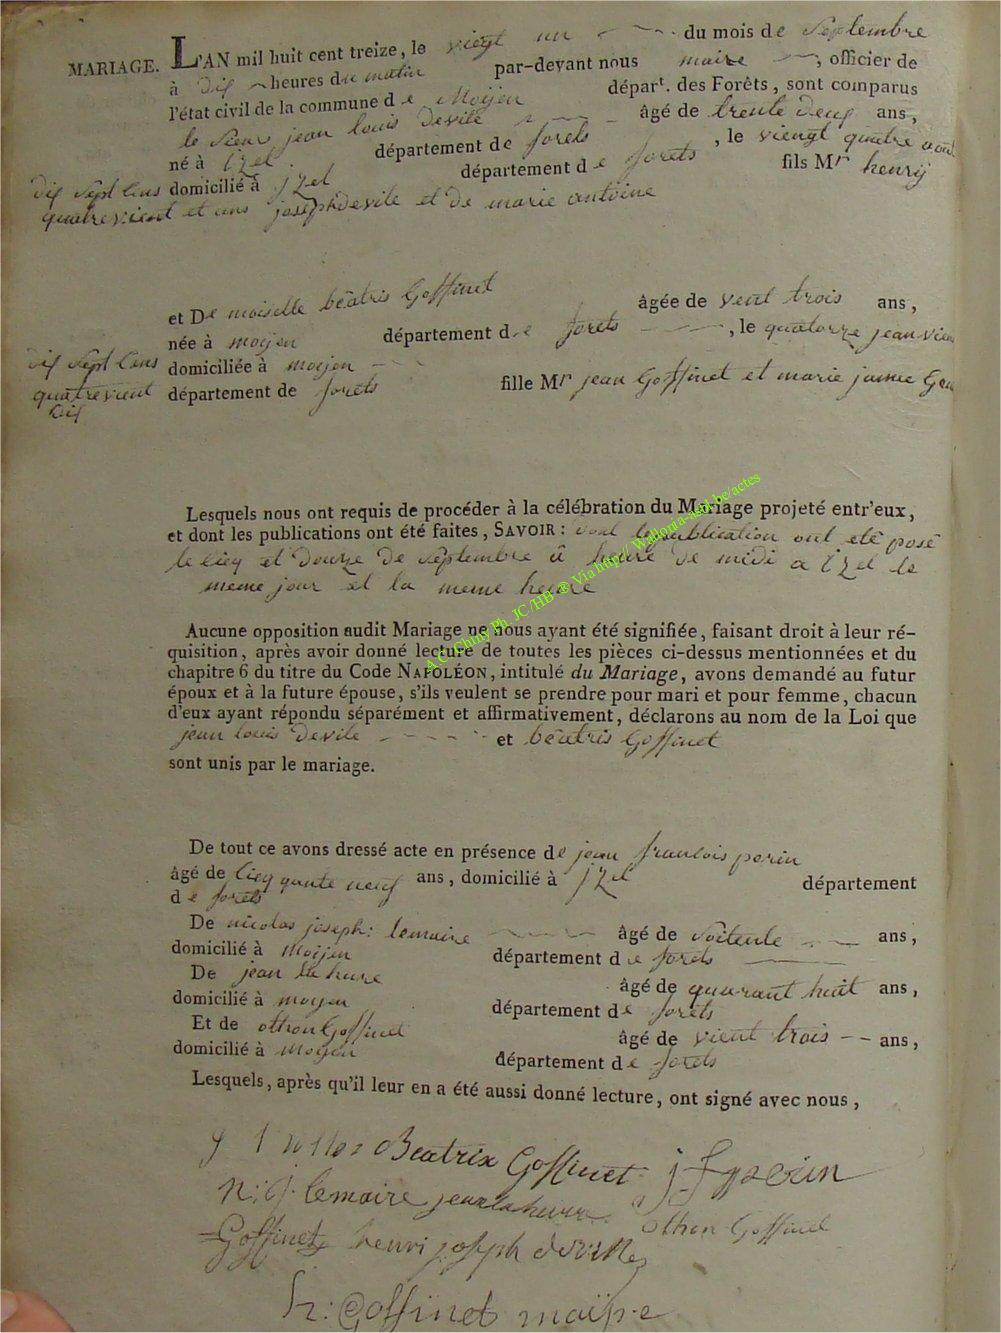 MARIAGE. L'AN mil huit cent treize, le viengt un du mois de Septembre
à dix heures du matin par-devant nous maire, officier de
l'état civil de la commune de Moÿen départ. des Forêts, sont comparus
le Sieur jean louis devile âgé de trente deux ans,
né à izel département de forets, le viengt quatre aout
dix sept cens domicilié à izel département de forets fils Mr henrÿ
quatrevient et un joseph devile et de marie antoine
et De moiselle béatris Goffinet âgée de vent trois ans,
née à moÿen département de forets, le quatorze jeanvier
dix sept Cens domiciliée à moÿen
quatrevient dix département de forets fille Mr jean Goffinet et marie jeanne
Lesquels nous ont requis de procéder à la célébration du Mariage projeté entr'eux,
et dont les publications ont été faites, SAVOIR : dont le publication ont eté posé
le cieq et douze de septembre à heure de midi a izel le
meme jour et la meme heure
Aucune opposition audit Mariage ne nous ayant été signifiée, faisant droit à leur ré-
quisition, après avoir donné lecture de toutes les pièces ci-dessus mentionnées et du
chapitre 6 du titre du Code NAPOLÉON, intitulé du Mariage, avons demandé au futur
époux et à la future épouse, s'ils veulent se prendre pour mari et pour femme, chacun
d'eux ayant répondu séparément et affirmativement, déclarons au nom de la Loi que
jean louis devile et béatris Goffinet
sont unis par le mariage.
De tout ce avons dressé acte en présence de jean francois perin
âgé de Cieqquante neuf ans, domicilié à izel département
de forets
De nicolas joseph: lemaire âgé de soitente ans,
domicilié à Moÿen département de forets
De jean la hure âgé de quarant huit ans,
domicilié à moÿen département de forets
Et de othon Goffinet âgé de vient trois ans,
domicilié à moÿen département de forets
Lesquels, après qu'il leur en a été aussi donné lecture, ont signé avec nous,
Beatrix Goffinet j f perin
n: j. lemaire jean lahurre othon Goffinet
Goffinet henri joseph deville
h: Goffinet maire
A.C. Chiny Ph. JC/HB ® Via http// Wallonia-asbl.be/actes